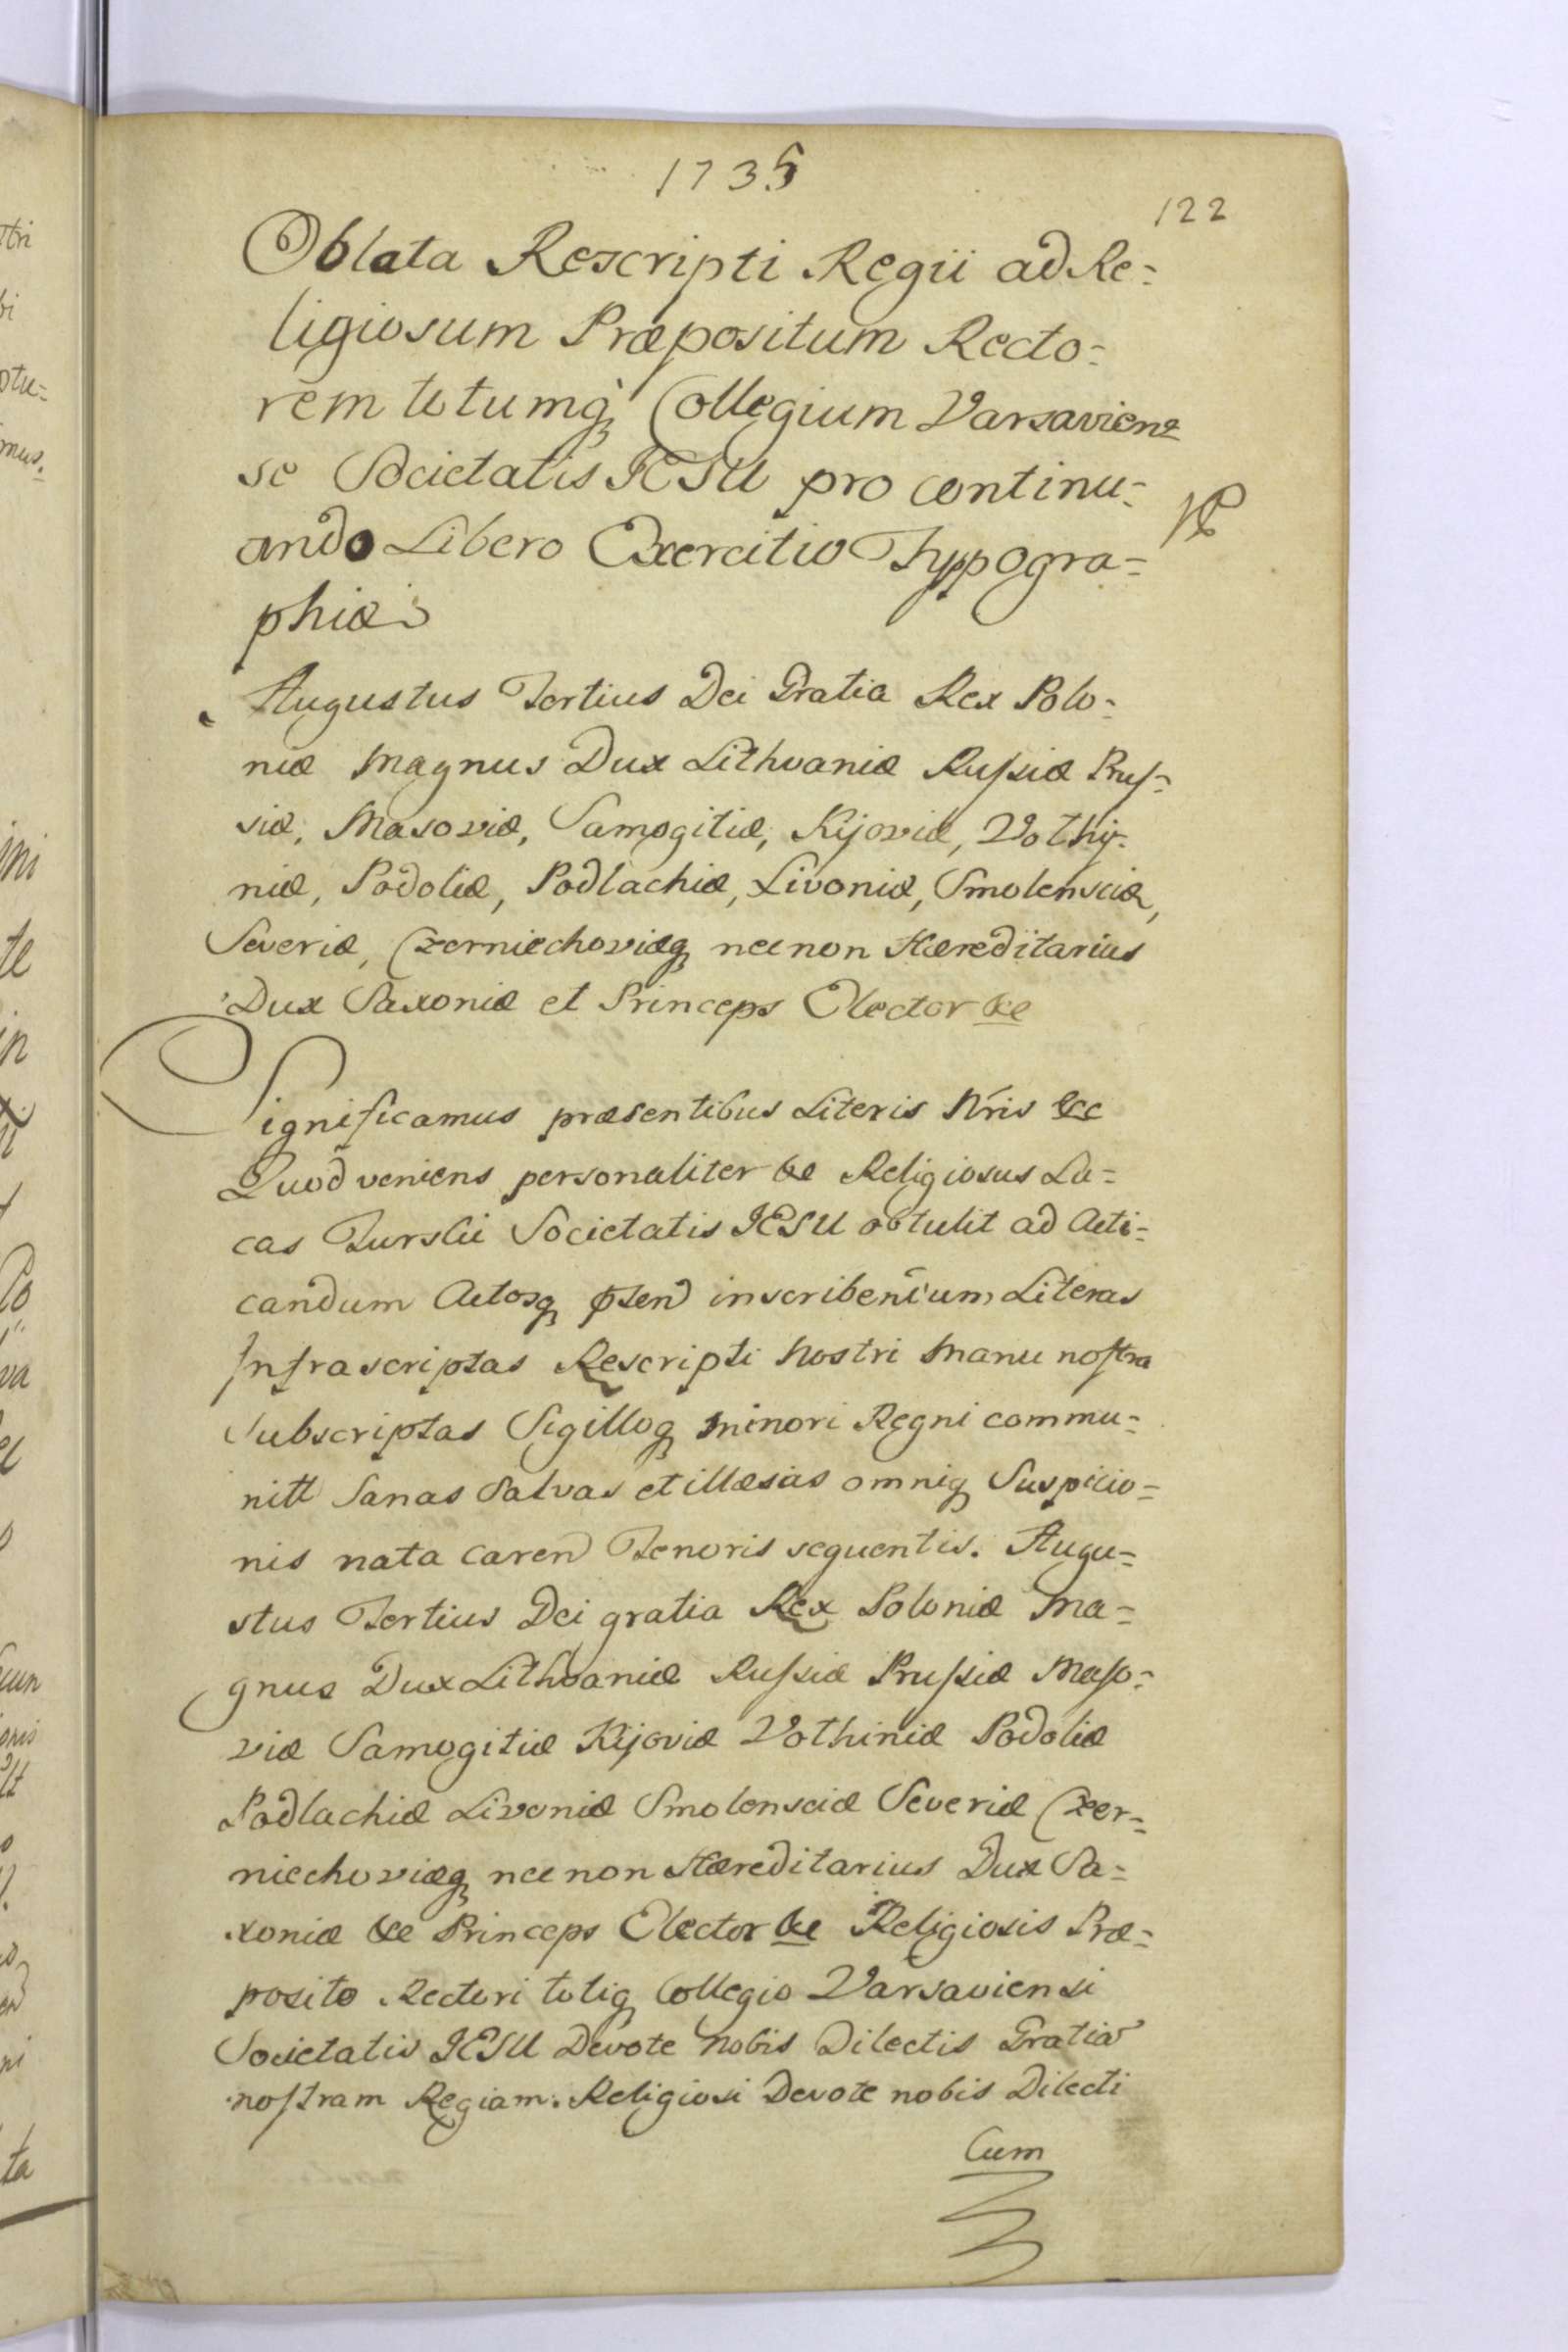 1735
122
Oblata Rescripti Regii ad Re=
ligiosum Præpositum Recto=
rem totumq Collegium Varsavien=
se Societatis IESU pro continu=
ando Libero Exercitio Typpogra=
phiæ
Augustus Tertius Dei Gratia Rex Polo=
niæ Magnus Dux Lithvaniæ Russiæ Prus=
siæ, Masoviæ, Samogitiæ, Kijoviæ, Volhy=
niæ, Podoliæ, Podlachiæ, Livoniæ, Smolensciæ,
Severiæ, Czerniechoviæq necnon Hæreditarius
Dux Saxoniæ et Princeps Elector &c
Significamus præsentibus Literis Nris &c
Quod veniens personaliter &c Religiosus Lu=
cas Turski Societatis IESU obtulit ad Acti=
candum Actosq inscribendum Literas
Infrascriptas Rescripti Nostri Manu nostra
Subscriptas Sigilloq Minori Regni commu=
nitt Sanas Salvas et illæsas omniq Suspicio=
nis nata caren Tenoris sequentis. Augu=
stus Tertius Dei gratia Rex Poloniæ Ma=
gnus Dux Lithvaniæ Russiæ Prussiæ Maso=
viæ Samogitiæ Kijoviæ Volhiniæ Podoliæ
Podlachiæ Livoniæ Smolensciæ Severiæ Czer=
niechoviæq necnon Hæreditarius Dux Sa=
xoniæ &c Princeps Elector &c Religiosis Præ=
posito Rectori totiq Collegio Varsaviensi
Societatis IESU Devote Nobis Dilectis Gratiã
nostram Regiam. Religiosi Devote nobis Dilecti
Cum